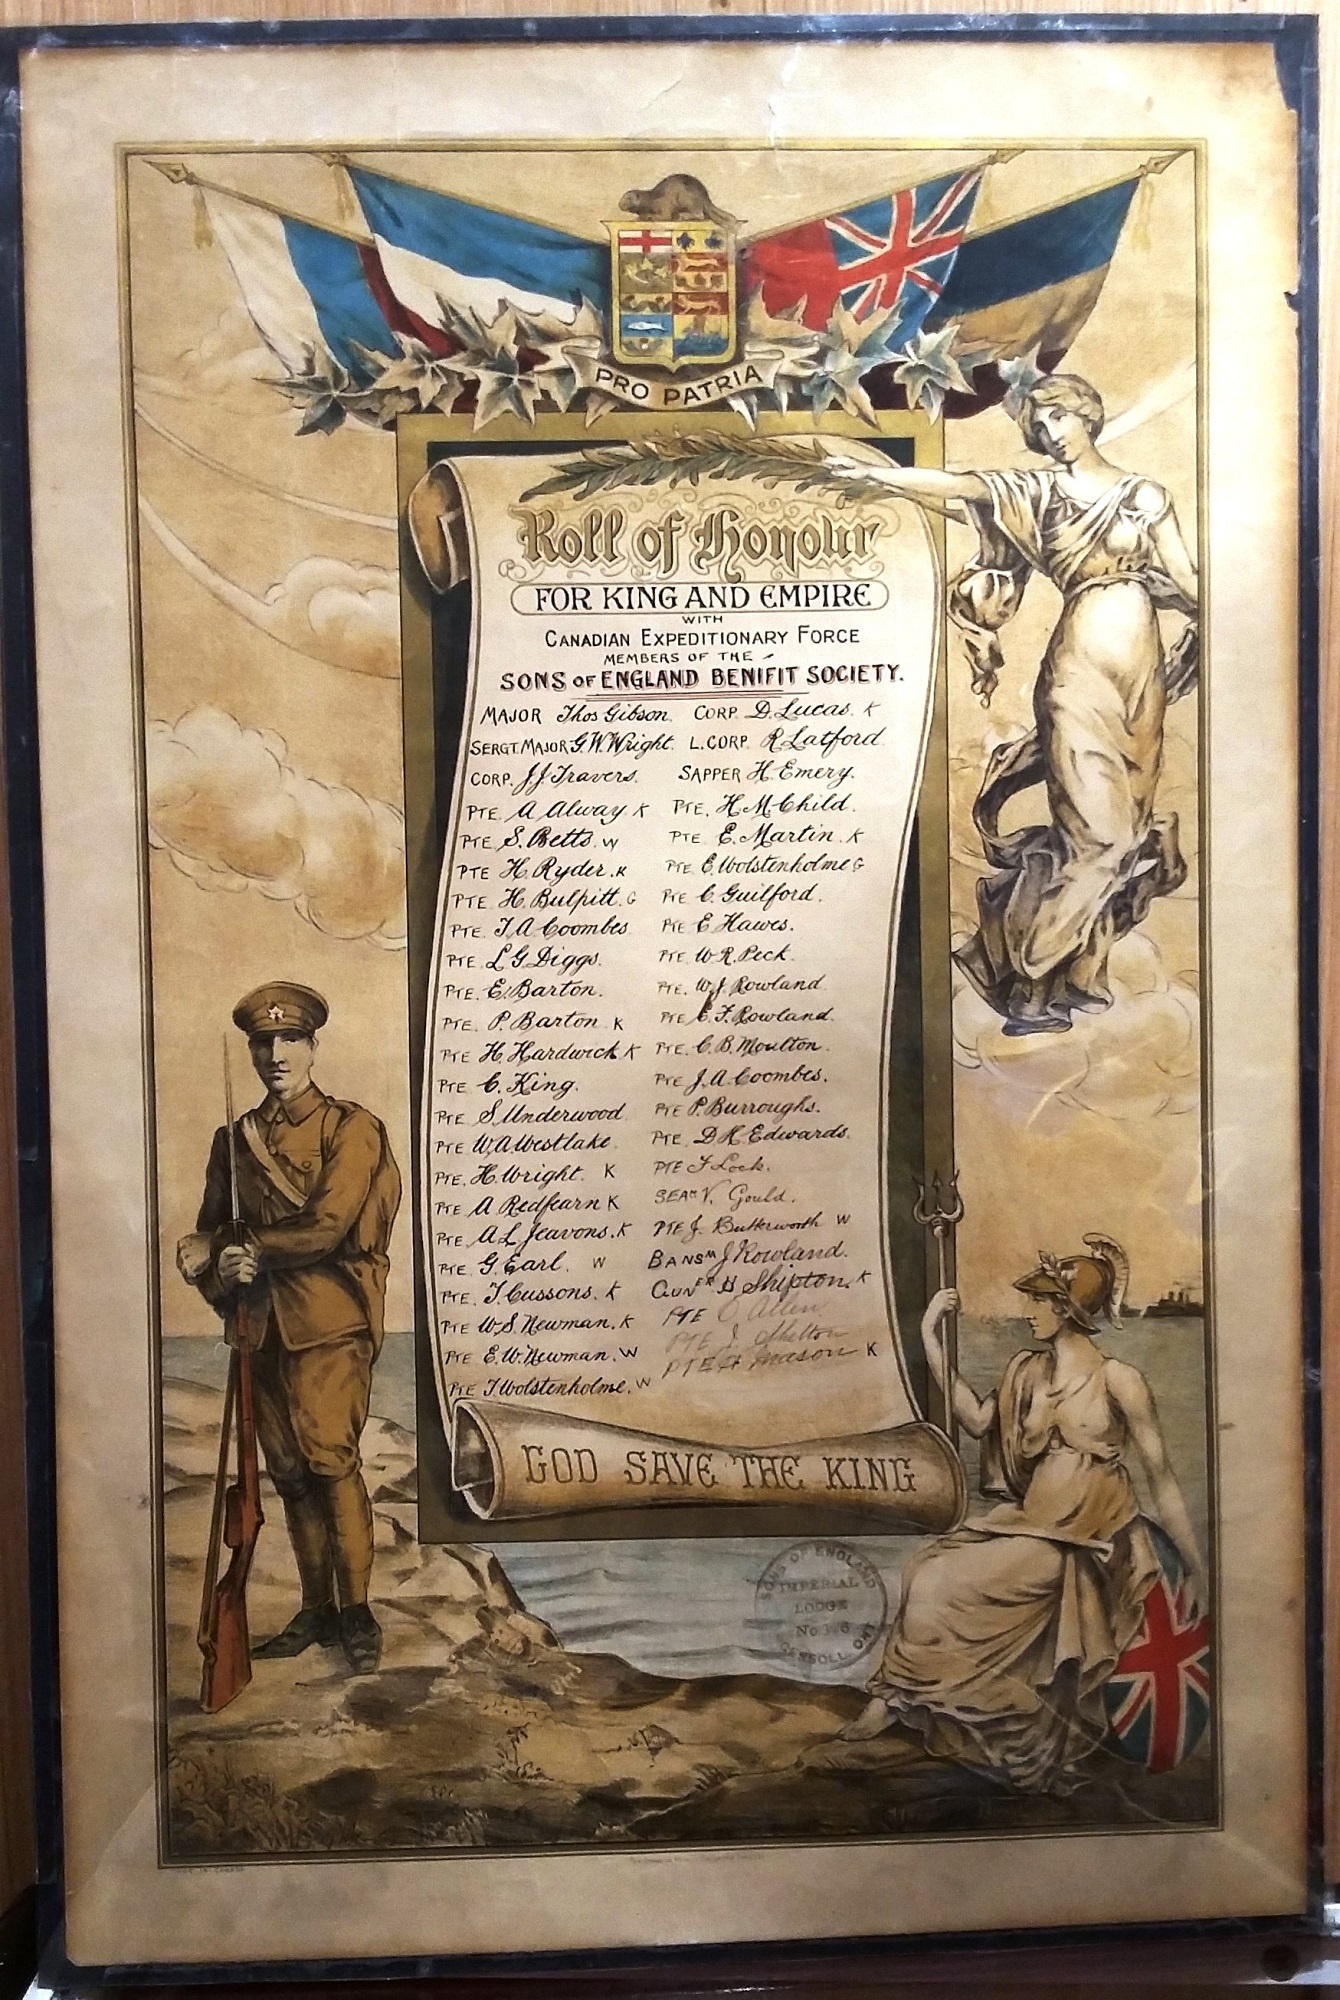 PRO PATRIA
Roll of Honour
FOR KING AND EMPIRE
WITH
CANADIAN EXPEDITIONARY FORCE
MEMBERS OF THE
SONS OF ENGLAND BENIFIT SOCIETY.
MAJOR Thos Gibson. CORP. D. Lucas. K
SERGT. MAJOR G.W. Wright. L. CORP. R Latford.
CORP. J.J. Travers. SAPPER H. Emery.
PTE. A Alway K PTE. H. M. Child.
PTE S. Betts. W PTE. E. Martin. K
PTE H. Ryder. K PTE E. Wolstenholme G
PTE. H. Bulpitt. G PTE C. Guilford.
PTE. T. A. Coombes. PTE E. Hawes.
PTE. L. G. Diggs. PTE. W. R. Peck.
PTE. E. Barton. PTE. W. J. Rowland.
PTE. P. Barton K PTE E. F. Rowland.
PTE H. Hardwick K PTE. C. B. Moulton.
PTE C. King. PTE J. A. Coombes.
PTE S. Underwood. PTE P. Burroughs.
PTE W. A. Westlake. PTE. D H. Edwards.
PTE. H. Wright. K PTE F Lock.
PTE A Redfearn K SEAN V. Gould.
PTE. A. L. Jeavons. K PTE J. Butterworth W
PTE. G. Earl. W BANSM J Rowland.
PTE. T. Cussons. K GUNER H Shipton. K
PTE W. S. Newman. K PTE Allen
PTE E. W. Newman. W PTE J. Shelton
PTE T. Wolstenholme. W PTE Mason K
GOD SAVE THE KING
SONS OF ENGLAND
IMPERIAL
LODGE
No
ONT